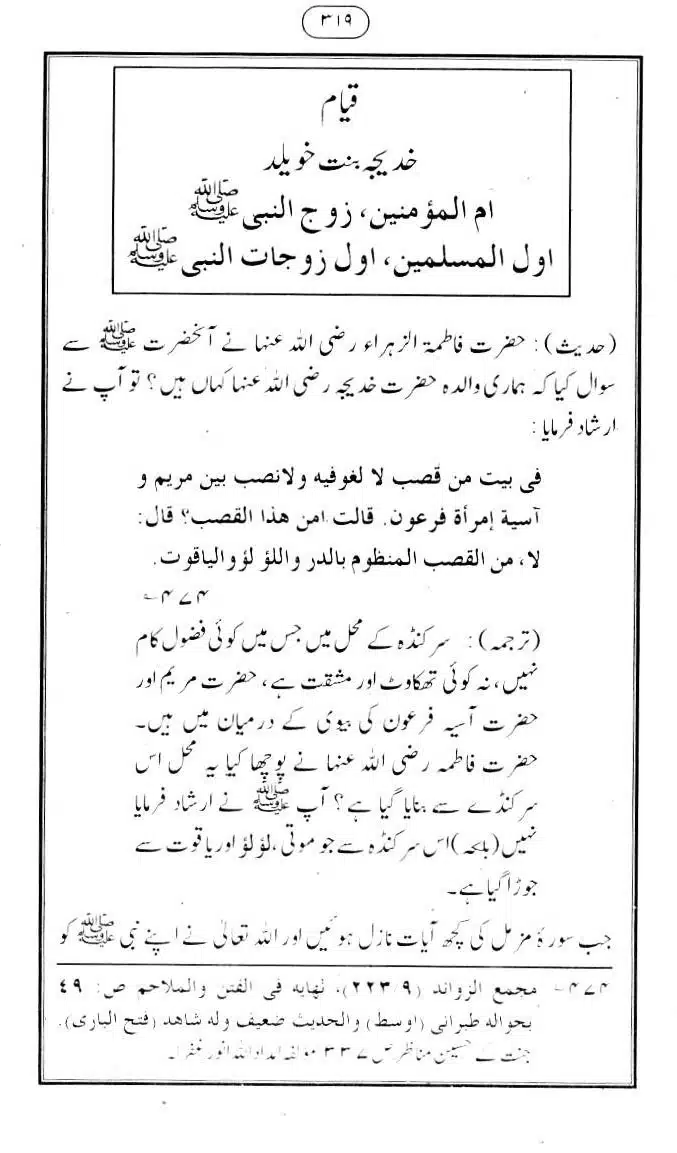 ۳۱۹
قیام
خدیجہ بنت خویلد
ام المؤمنین، زوج النبی ﷺ
اول المسلمین، اول زوجات النبی ﷺ
(حدیث): حضرت فاطمۃ الزہراء رضی اللہ عنہا نے آنحضرت ﷺ سے
سوال کیا کہ ہماری والدہ حضرت خدیجہ رضی اللہ عنہا کہاں ہیں؟ تو آپ نے
ارشاد فرمایا:
فی بیت من قصب لا لغوفیه ولانصب بین مریم و
آسیة إمرأة فرعون. قالت امن هذا القصب؟ قال:
لا، من القصب المنظوم بالدر واللؤ لؤ والیاقوت.
۴۷۴ ؎
(ترجمہ): سرکنڈہ کے محل میں جس میں کوئی فضول کام
نہیں، نہ کوئی تھکاوٹ اور مشقت ہے، حضرت مریم اور
حضرت آسیہ فرعون کی بیوی کے درمیان میں ہیں۔
حضرت فاطمہ رضی اللہ عنہا نے پوچھا کیا یہ محل اس
سرکنڈے سے بنایا گیا ہے؟ آپ ﷺ نے ارشاد فرمایا
نہیں (بلکہ) اس سرکنڈہ سے جو موتی، لؤلؤ اور یاقوت سے
جوڑا گیا ہے۔
جب سورۂ مزمل کی کچھ آیات نازل ہوئیں اور اللہ تعالیٰ نے اپنے نبی ﷺ کو
۴۷۴ ؎ مجمع الزوائد (۲۲۳/۹)، نهایه فی الفتن والملاحم ص: ۴۹
بحواله طبرانی (اوسط) والحدیث ضعیف وله شاهد (فتح الباری).
جنت کے حسین مناظر ص ۳۳۷ مولفہ امداد اللہ انور غفرلہ۔